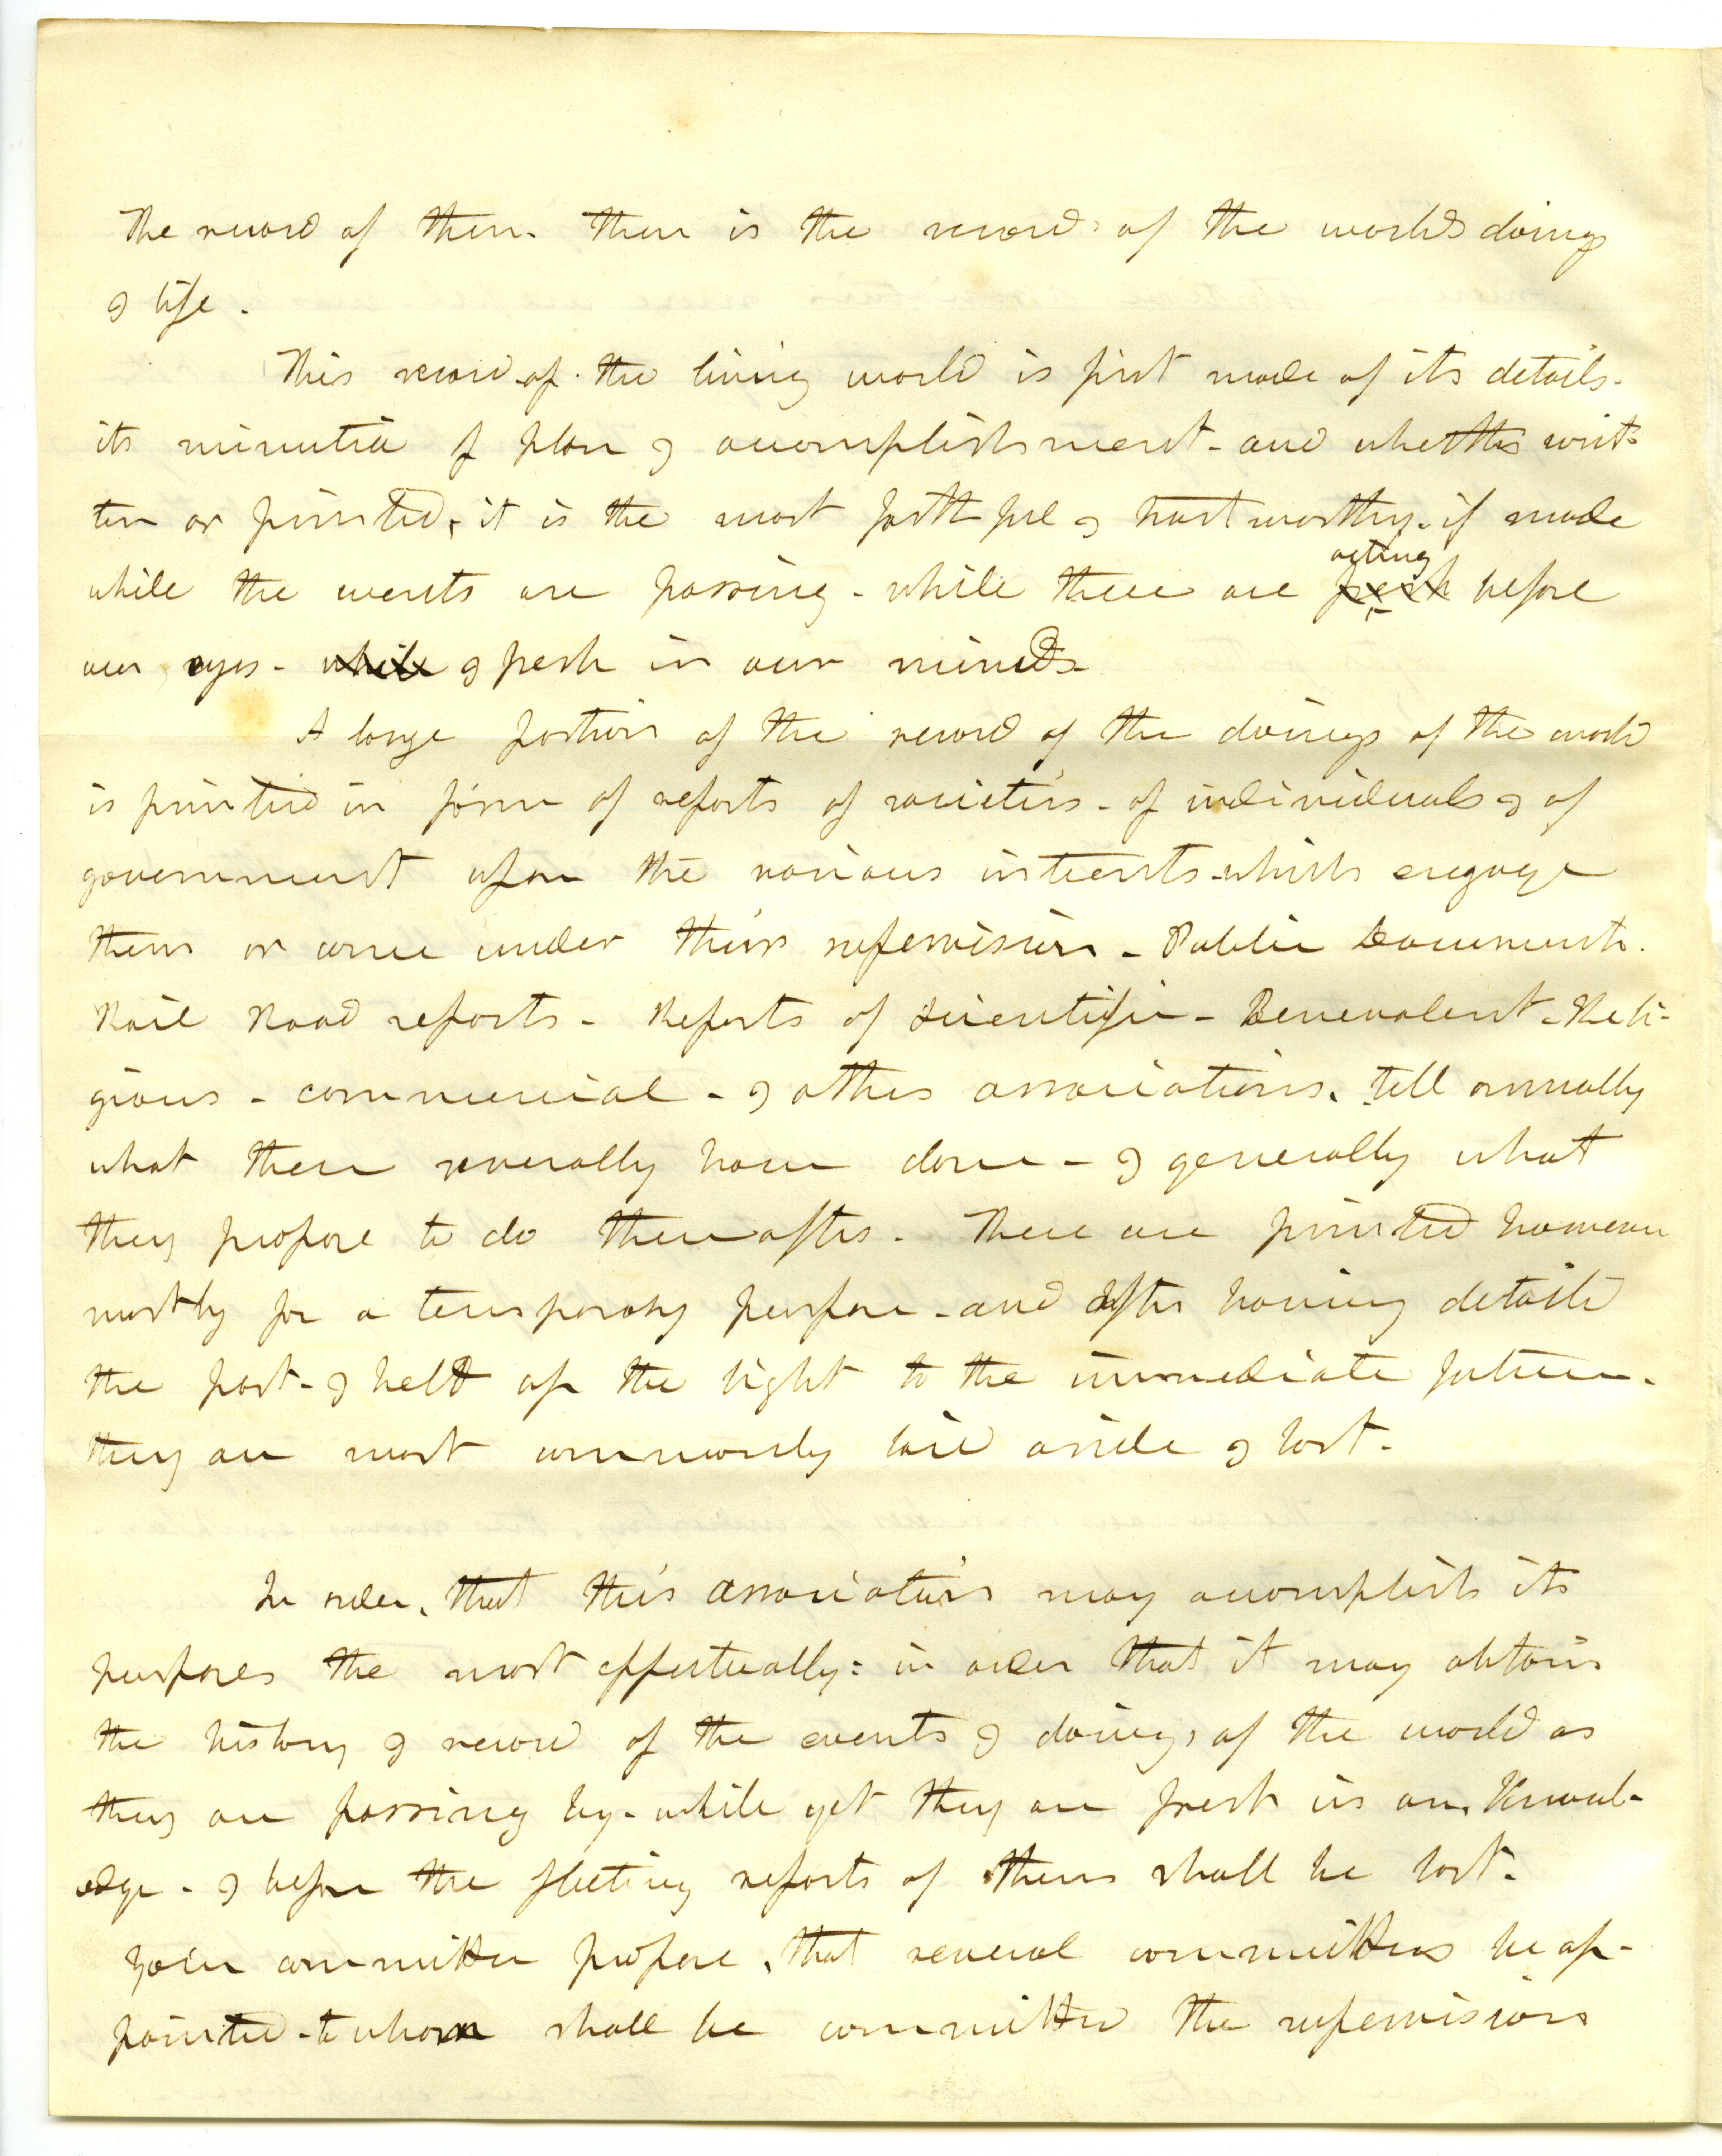 The record of them. there is the record of the worlds doings
& life.
This record of the living world is first made of its details.
its minutia of plan & accomplishment - and whether writ-
ten or printed, it is the most faithful & trustworthy. if made
while the events are passing - while these are fresh acting before
our eyes - while & fresh in our minds
A large portion of the record of the doings of the world
is printed in form of reports of societies - of individuals & of
government upon the various interests which engage
them or come under their supervision - Public Documents.
Rail Road reports - Reports of Scientific - Benevolent - Reli-
gious - commercial - & other associations. tell annually
what these severally have done - & generally what
they propose to do thereafter. These are printed however
mostly for a temporary purpose - and after having detailed
the past - & held up the light to the immediate future.
they are most commonly laid aside & lost.
In order, that this association may accomplish its
purposes the most effectually: in order that it may obtain
the history & record of the events & doings of the world as
they are passing by - while yet they are fresh in our Knowl-
edge - & before the fleeting reports of them shall be lost.
Your committee propose, that several committees be ap-
pointed - to whom shall be committed the supervision